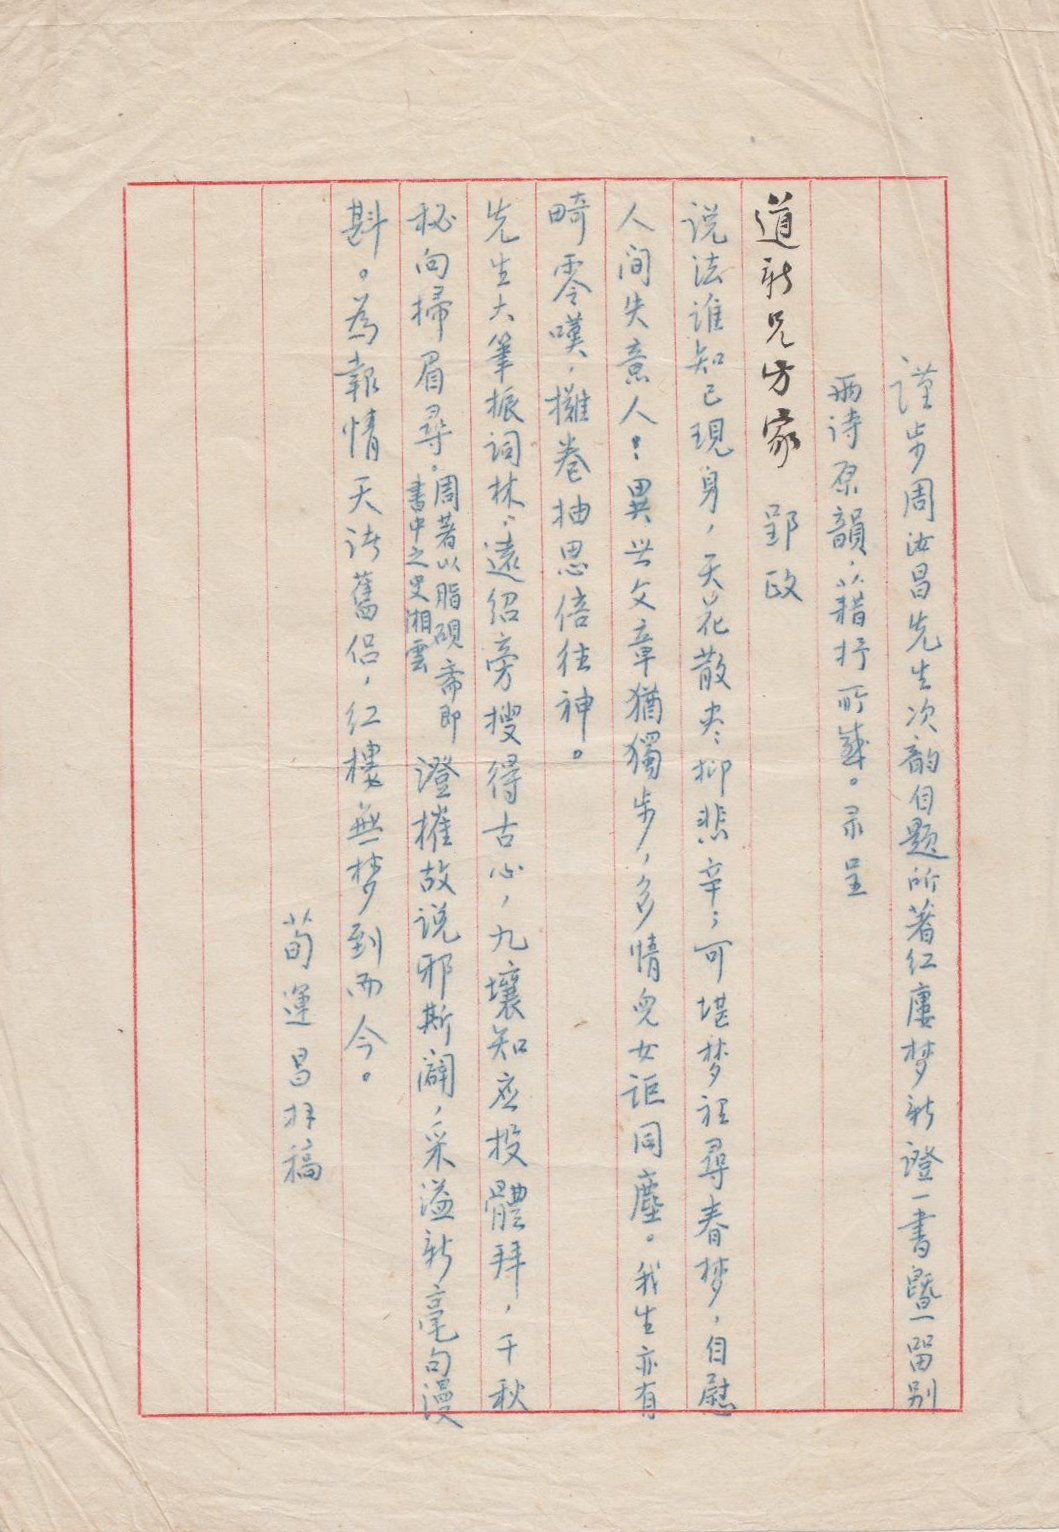 谨步周汝昌先生次韵自题所著红廔梦新證一書暨留别
两诗原韻，以藉抒所感。录呈
道新兄方家　郢政
说法谁知已現身，天花散尽抑悲辛；可堪梦裡尋春梦，自慰
人间失意人！異世文章猶獨步，多情兒女詎同塵。我生亦有
畸零嘆，攤卷抽思倍往神。
先生大筆振词林，遠绍旁搜得古心，九壤知应投體拜，千秋
秘向掃眉尋。周著以脂砚斋即書中之史湘雲　澄搉故说邪斯闢，采溢新毫句漫
斟。為報情天诸舊侣，红樓無梦到而今。
荀運昌拜稿